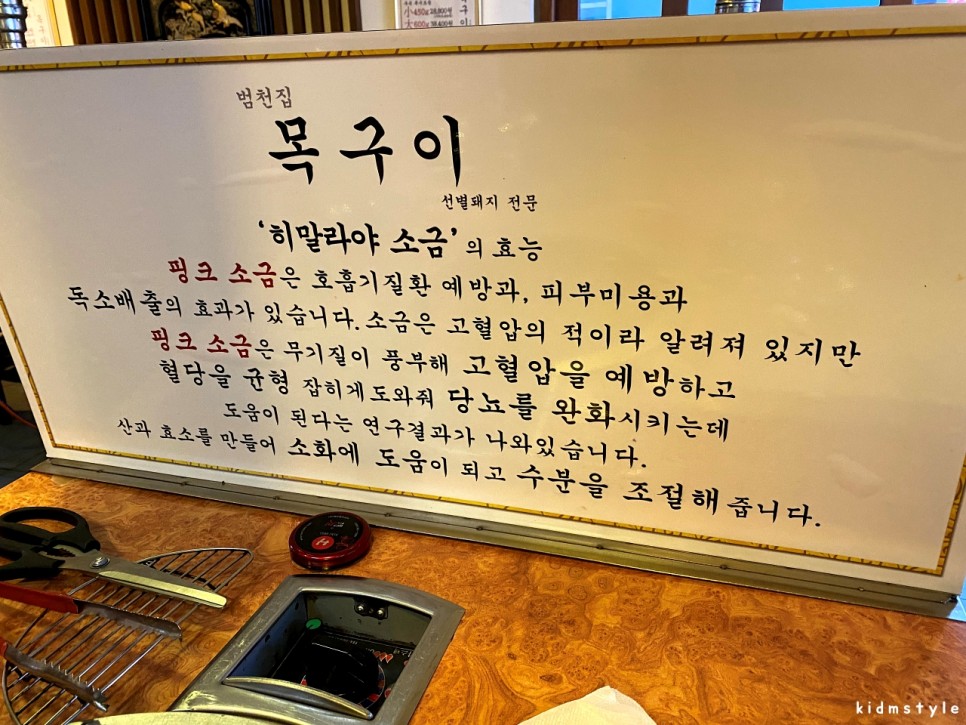 小450g 28,000원
大600g
범천집
목구이
선별돼지 전문
'히말라야 소금'의 효능
핑크 소금은 호흡기질환 예방과, 피부미용과
독소배출의 효과가 있습니다. 소금은 고혈압의 적이라 알려져 있지만
핑크 소금은 무기질이 풍부해 고혈압을 예방하고
혈당을 균형 잡히게도와줘 당뇨를 완화시키는데
도움이 된다는 연구결과가 나와있습니다.
산과 효소를 만들어 소화에 도움이 되고 수분을 조절해 줍니다.
kidmstyle